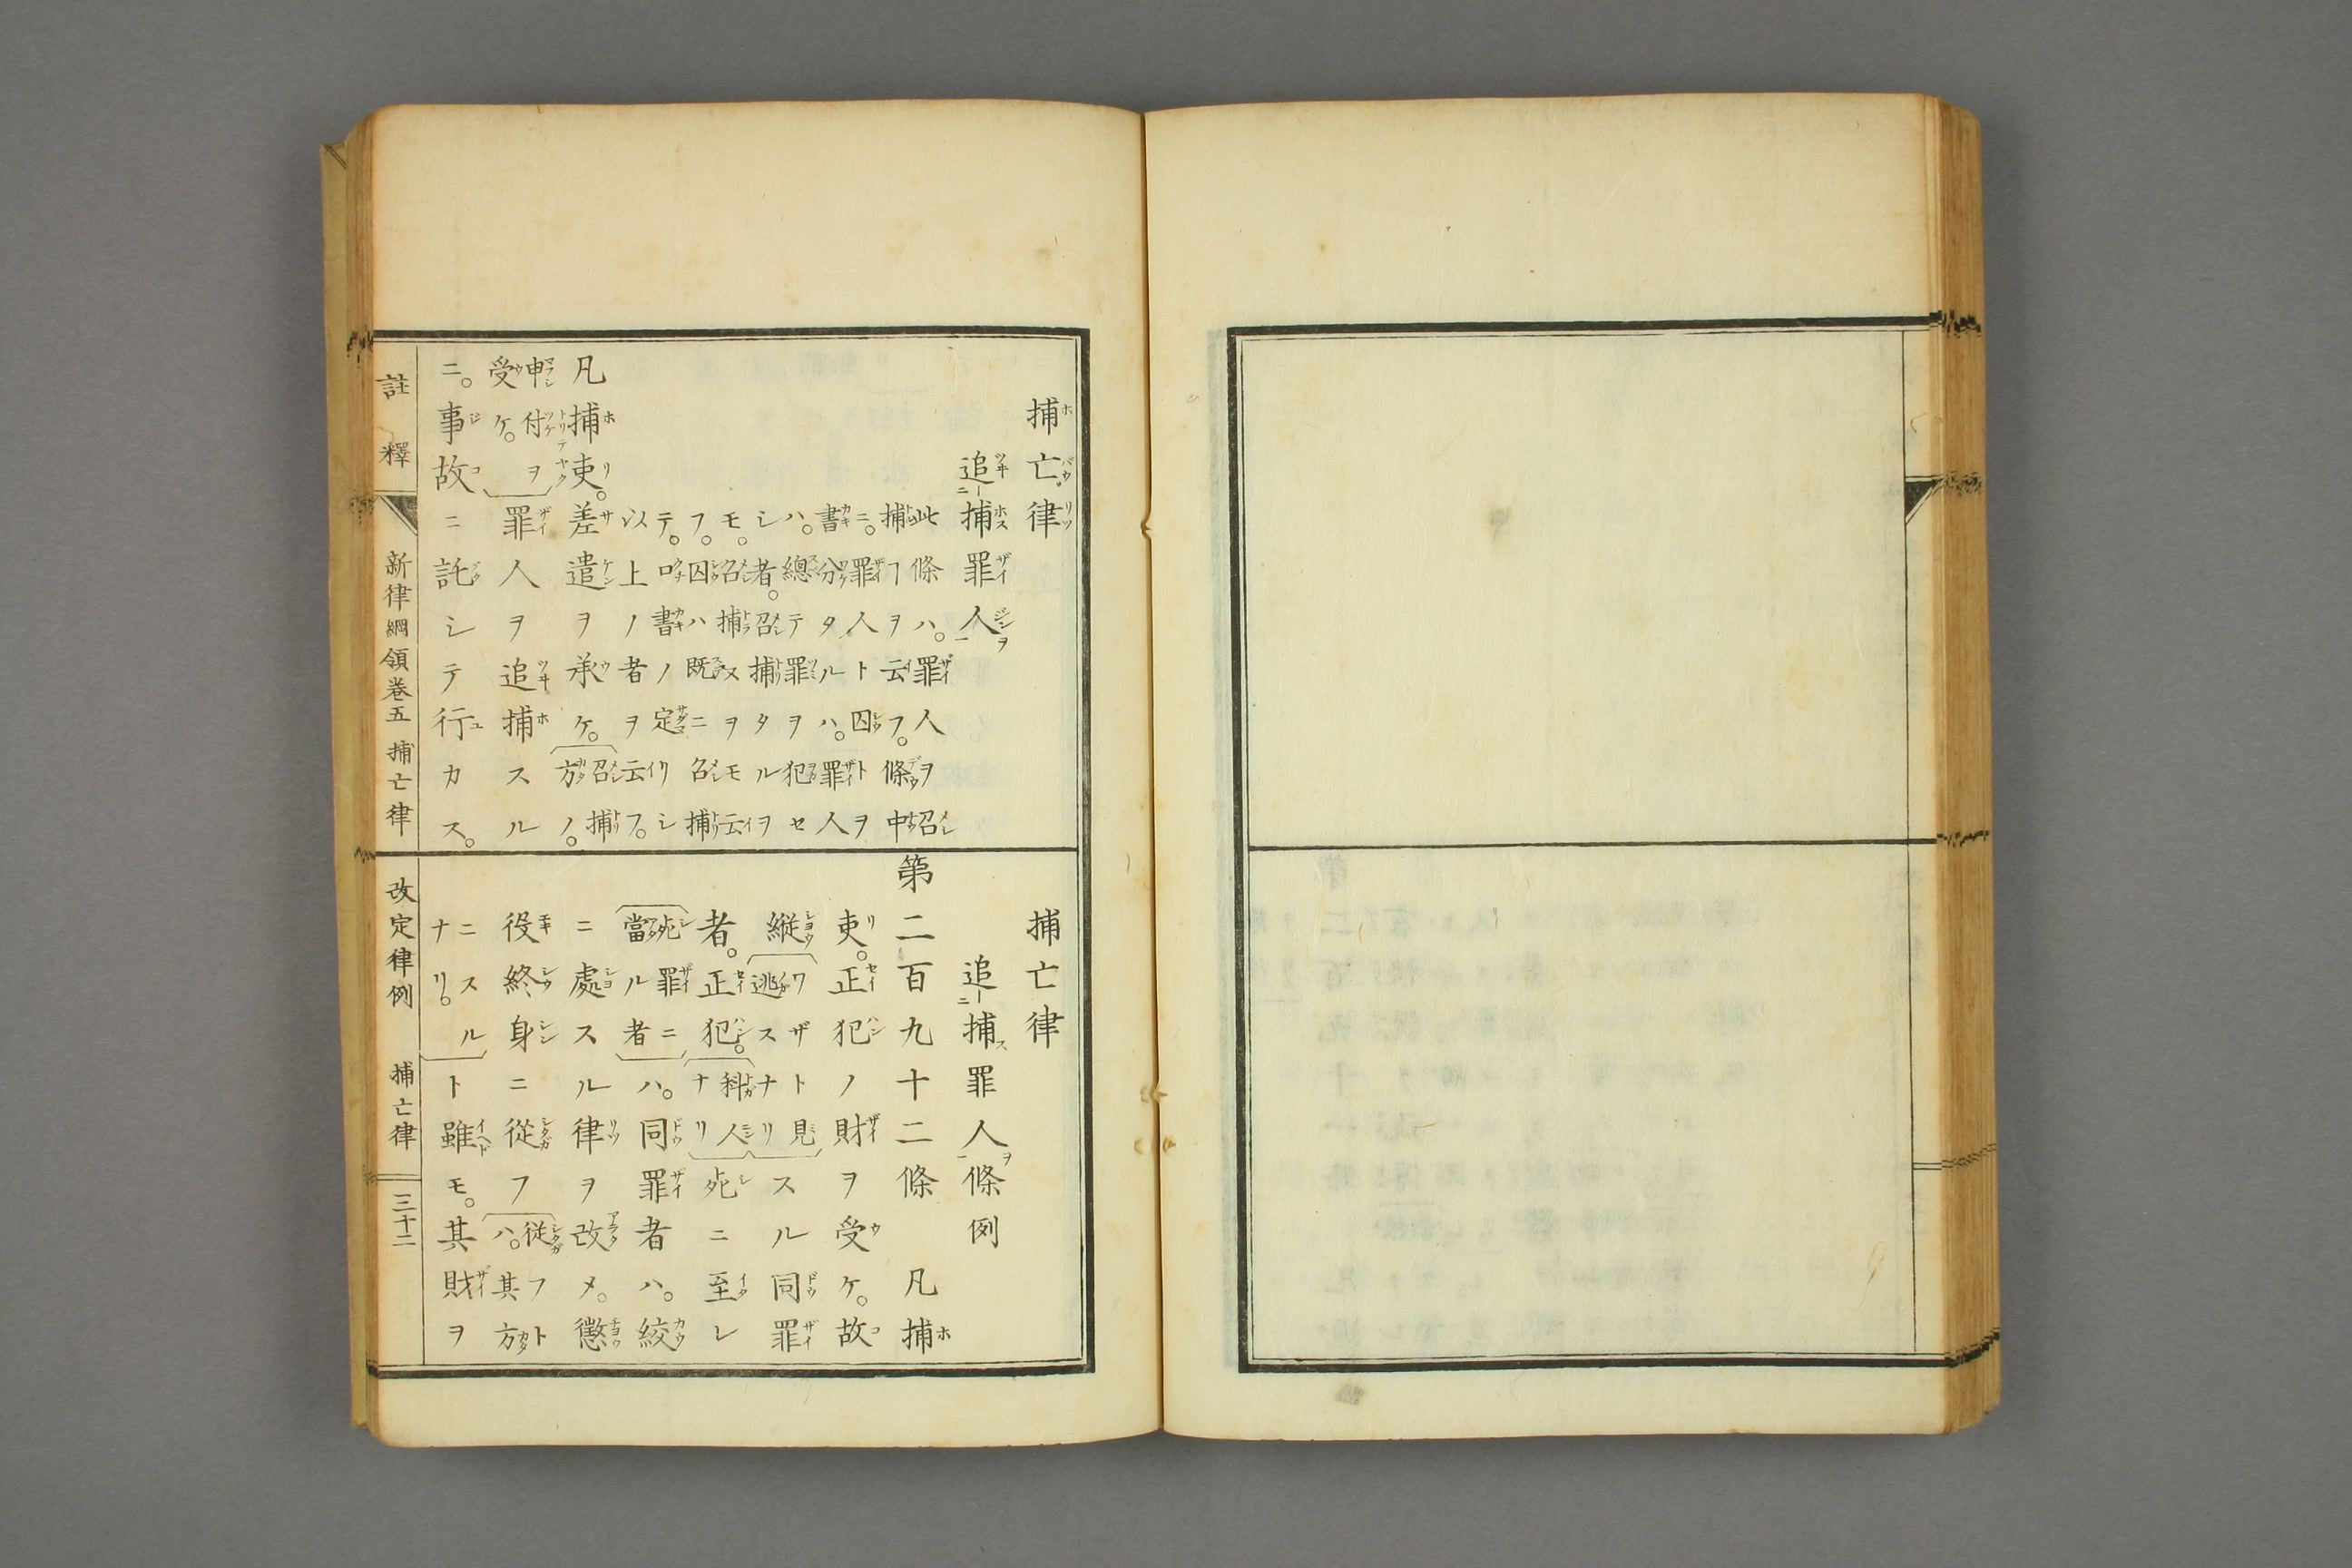 捕亡律
追捕罪人
此條ハ。罪人ヲ召
捕ヿヲ云フ。條中
ニ。罪人ト囚トヲ
書分タルハ。罪人
ハ。總テ罪ヲ犯セ
シ者。召捕タルヲ
モ。召捕ヌヲモ云
フ。囚ハ既ニ召捕
テ。口書ノ定リシ
以上ノ者ヲ云フ。
凡捕吏。差遣ヲ承ケ。召捕方ノ。
申付ヲ受ケ。罪人ヲ追捕スル
ニ。事故ニ託シテ行カス。
捕亡律
追捕罪人條例
第二百九十二條 凡捕
吏。正犯ノ財ヲ受ケ。故
縱ワザト見逃スナリスル同罪
者。正犯。科人ナリ死ニ至レ
死罪ニ當ル者ハ。同罪者ハ。絞
ニ處スル律ヲ改メ。懲
役終身ニ從フ從フトハ。其方
ニスルナリ。ト雖モ。其財ヲ
註釋 新律綱領卷五 捕亡律
改定律例 捕亡律 三十二